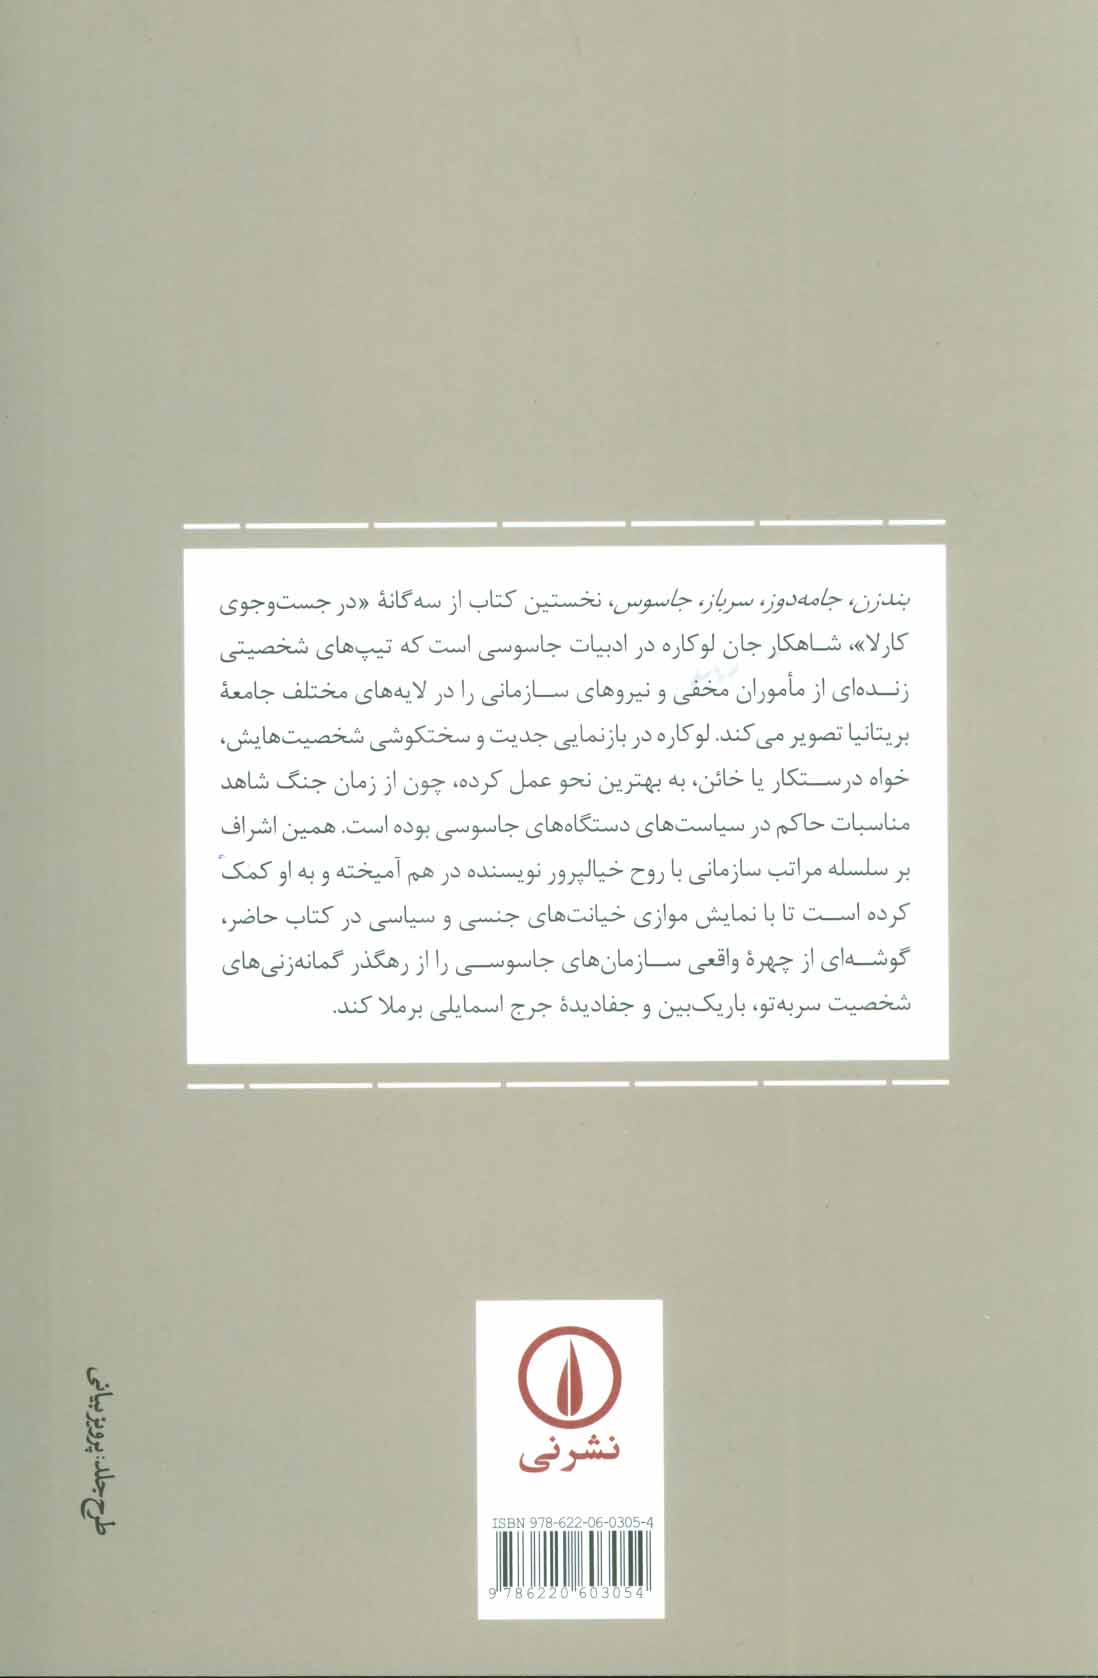 بندزن، جامه‌دوز، سرباز، جاسوس، نخستین کتاب از سه‌گانهٔ «در جست‌وجوی
کارلا»، شاهکار جان لوکاره در ادبیات جاسوسی است که تیپ‌های شخصیتی
زنده‌ای از مأموران مخفی و نیروهای سازمانی را در لایه‌های مختلف جامعهٔ
بریتانیا تصویر می‌کند. لوکاره در بازنمایی جدیت و سختکوشی شخصیت‌هایش،
خواه درستکار یا خائن، به بهترین نحو عمل کرده، چون از زمان جنگ شاهد
مناسبات حاکم در سیاست‌های دستگاه‌های جاسوسی بوده است. همین اشراف
بر سلسله مراتب سازمانی با روح خیالپرور نویسنده در هم آمیخته و به او کمک
کرده است تا با نمایش موازی خیانت‌های جنسی و سیاسی در کتاب حاضر،
گوشه‌ای از چهرهٔ واقعی سازمان‌های جاسوسی را از رهگذر گمانه‌زنی‌های
شخصیت سربه‌تو، باریک‌بین و جفادیدهٔ جرج اسمایلی برملا کند.
طرح جلد: پرویز بیانی
نشر نی
ISBN 978-622-06-0305-4
9 786220 603054